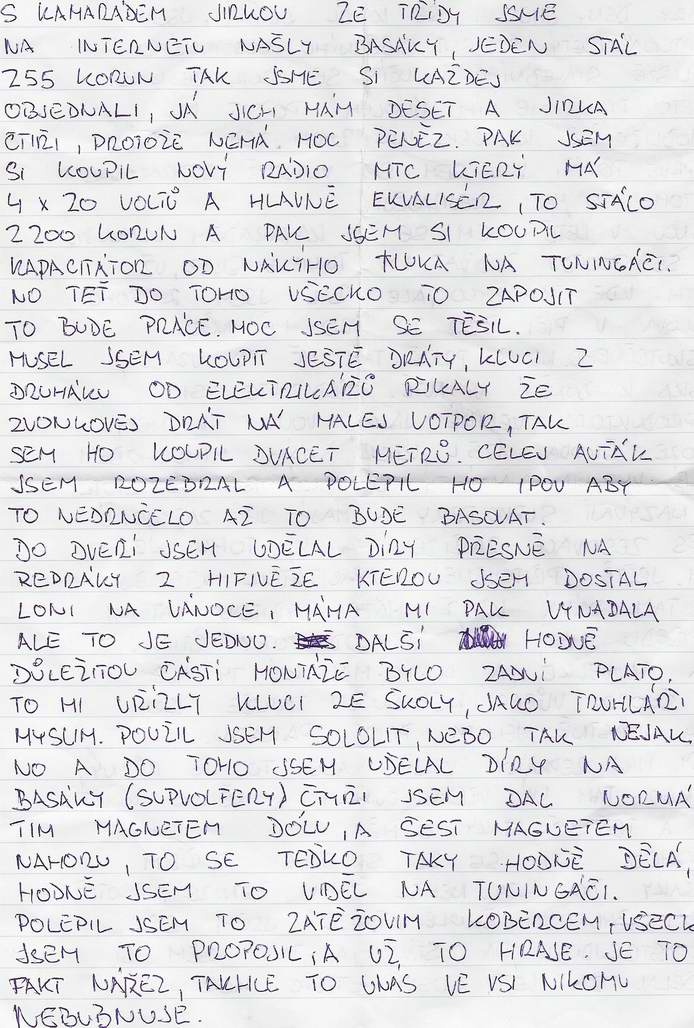 S KAMARÁDEM JIRKOU ZE TŘÍDY JSME
NA INTERNETU NAŠLY BASÁKY, JEDEN STÁL
255 KORUN TAK JSME SI KAŽDEJ
OBJEDNALI, JÁ JICH MÁM DESET A JIRKA
ČTIŘI, PROTOŽE NEMÁ MOC PENĚZ. PAK JSEM
SI KOUPIL NOVÝ RÁDIO MTC KTERÝ MÁ
4 x 20 VOLTŮ A HLAVNĚ EKVALISÉR, TO STÁLO
2200 KORUN A PAK JSEM SI KOUPIL
KAPACITÁTOR OD ŇÁKÝHO KLUKA NA TUNINGÁČI.
NO TEŤ DO TOHO VŠECKO TO ZAPOJIT
TO BUDE PRÁCE. MOC JSEM SE TĚŠIL.
MUSEL JSEM KOUPIT JEŠTĚ DRÁTY, KLUCI Z
DRUHÁKU OD ELEKTRIKÁŘŮ ŘIKALY ŽE
ZVONKOVEJ DRÁT MÁ MALEJ VOTPOR, TAK
SEM HO KOUPIL DVACET METRŮ. CELEJ AUŤÁK
JSEM ROZEBRAL A POLEPIL HO IPOU ABY
TO NEDRNČELO AŽ TO BUDE BASOVAT.
DO DVEŘÍ JSEM UDĚLAL DÍRY PŘESNĚ NA
REPRÁKY Z HIFIVĚŽE KTEROU JSEM DOSTAL
LONI NA VÁNOCE, MÁMA MI PAK VYNADALA
ALE TO JE JEDNO. DALŠÍ HODNĚ
DŮLEŽITOU ČÁSTÍ MONTÁŽE BYLO ZADNÍ PLATO,
TO MI UŘÍZLY KLUCI ZE ŠKOLY, JAKO TRUHLÁŘI
MYSLIM. POUŽIL JSEM SOLOLIT, NEBO TAK NĚJAK.
NO A DO TOHO JSEM UDĚLAL DÍRY NA
BASÁKY (SUPVOLFERY) ČTYŘI JSEM DAL NORMÁ
TIM MAGNETEM DOLU, A ŠEST MAGNETEM
NAHORU, TO SE TEĎKO TAKY HODNĚ DĚLÁ,
HODNĚ JSEM TO VIDĚL NA TUNINGÁČI.
POLEPIL JSEM TO ZÁTĚŽOVIM KOBERCEM, VŠECK
JSEM TO PROPOJIL, A UŽ TO HRAJE. JE TO
FAKT NÁŘEZ, TAKHLE TO UNÁS VE VSI NIKOMU
NEBUBNUJE.